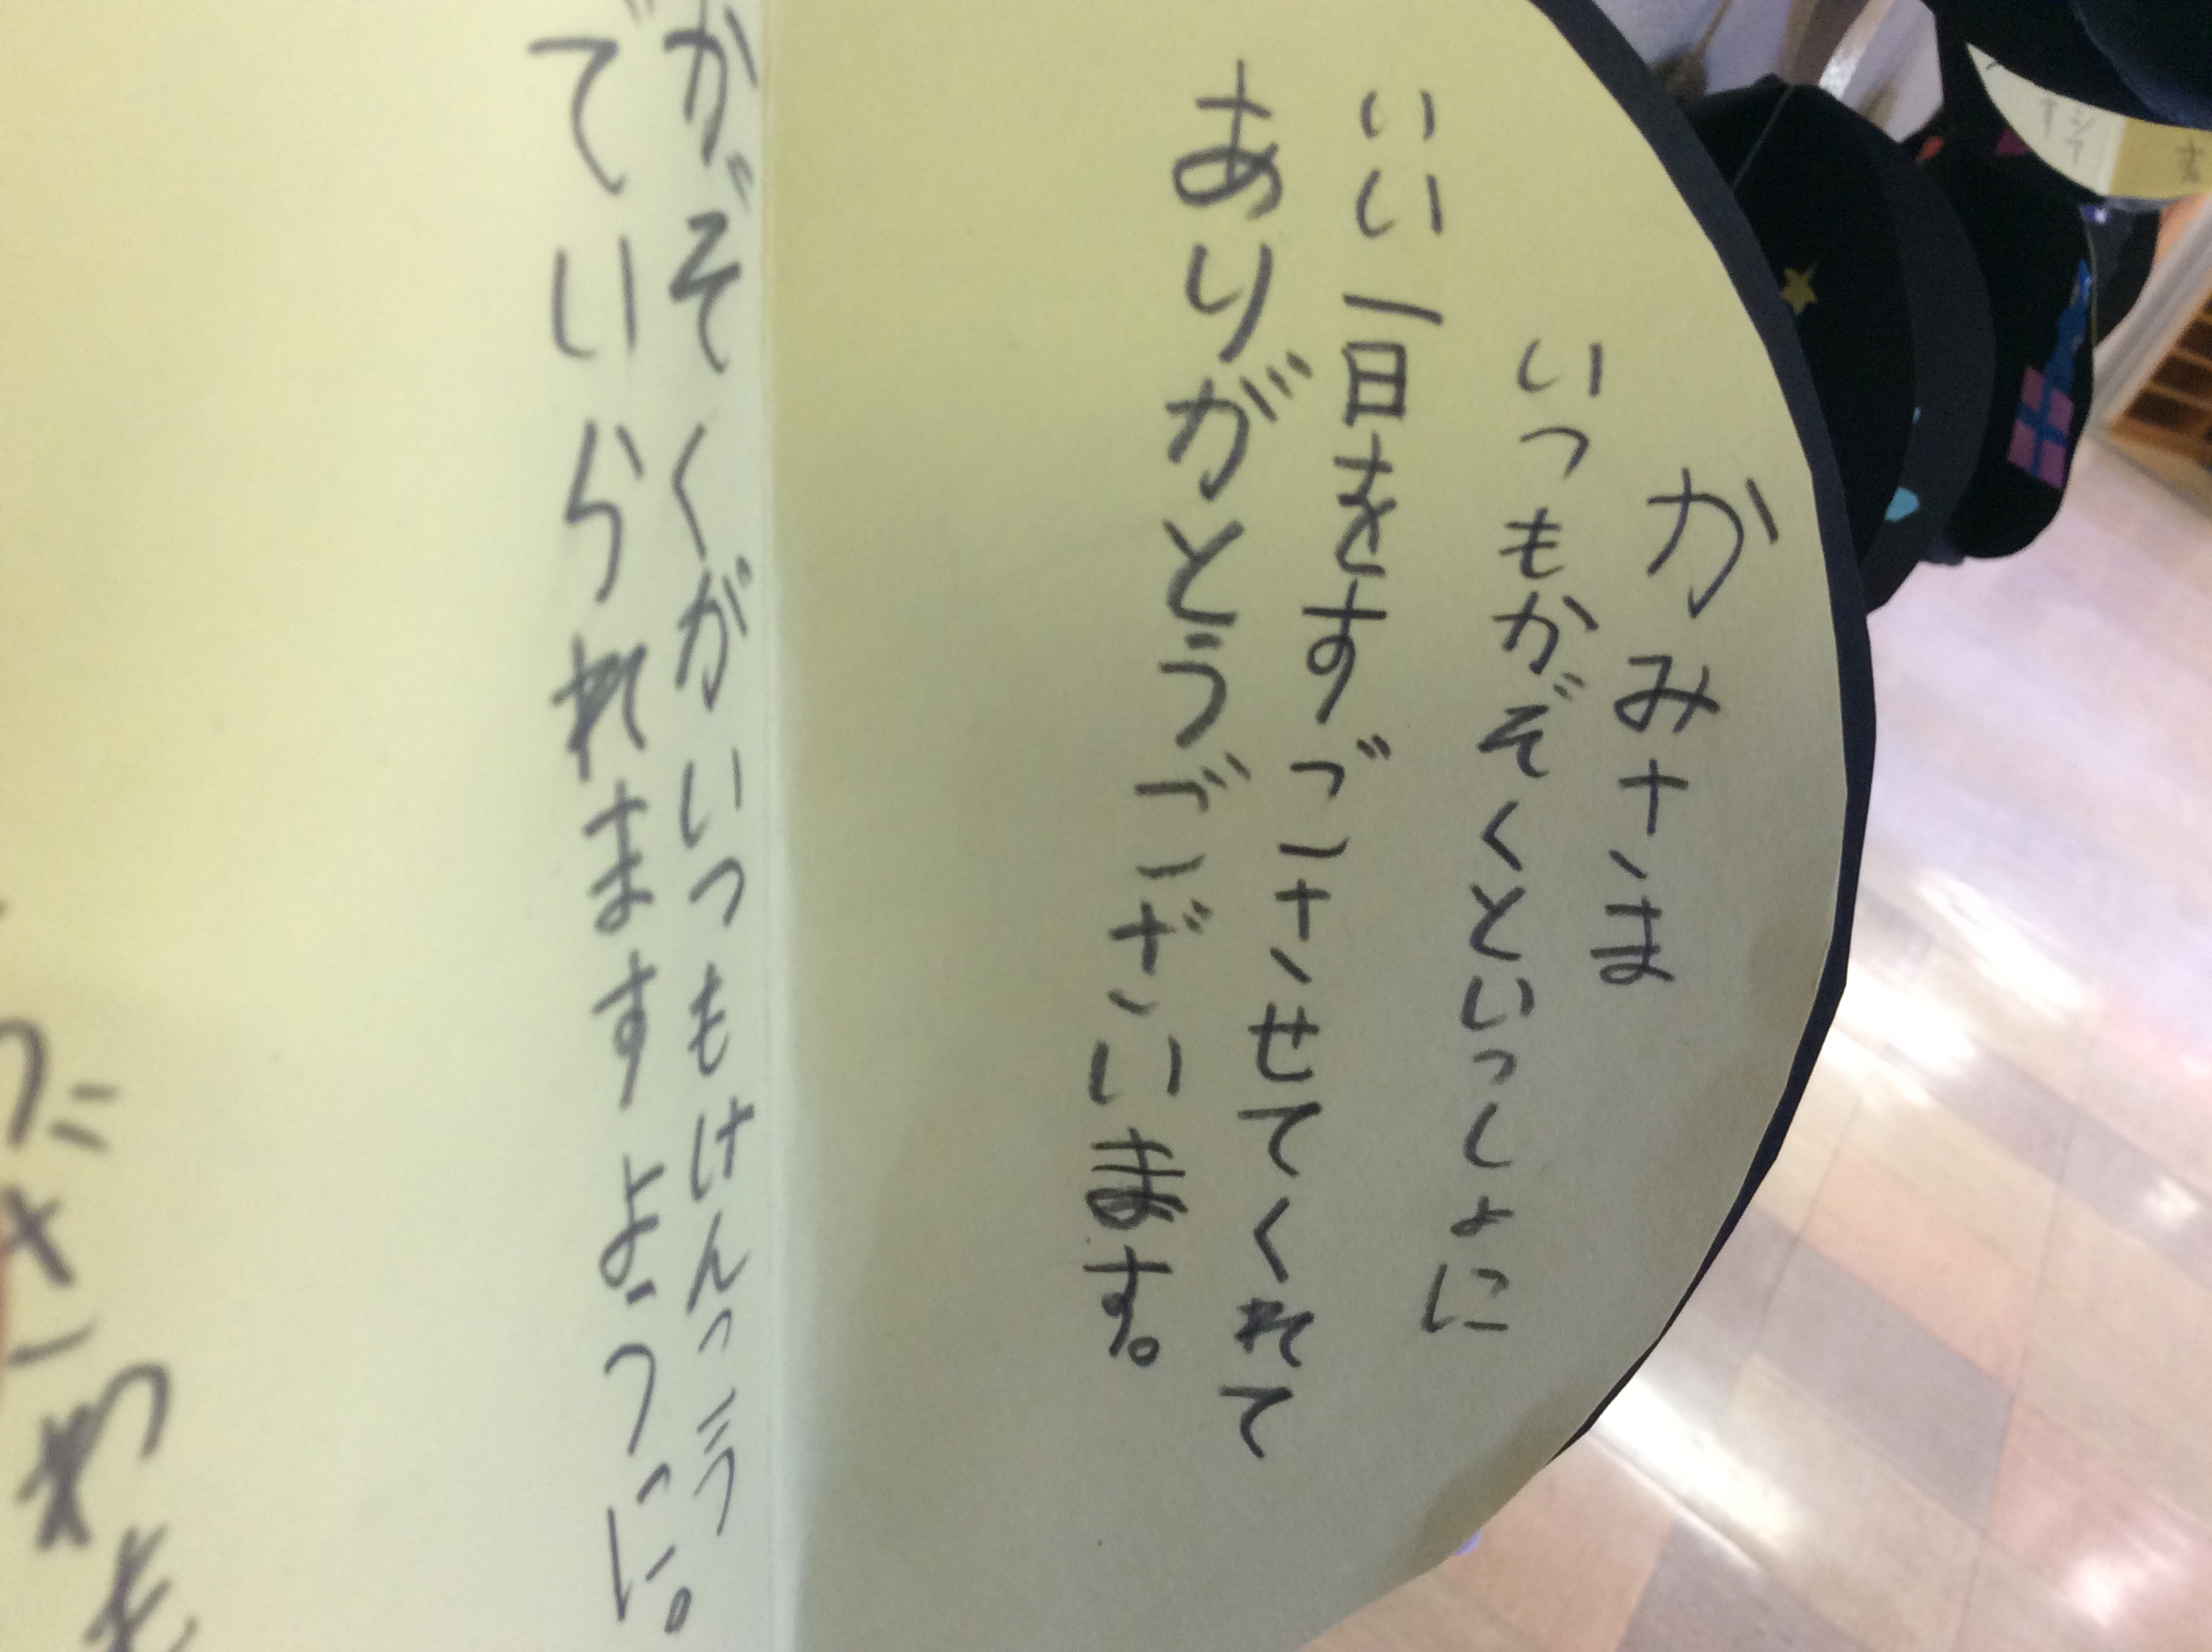 かみさま
いつもかぞくといっしょに
いい一日をすごさせてくれて
ありがとうございます。
かぞくがいつもけんこう
でいられますように。